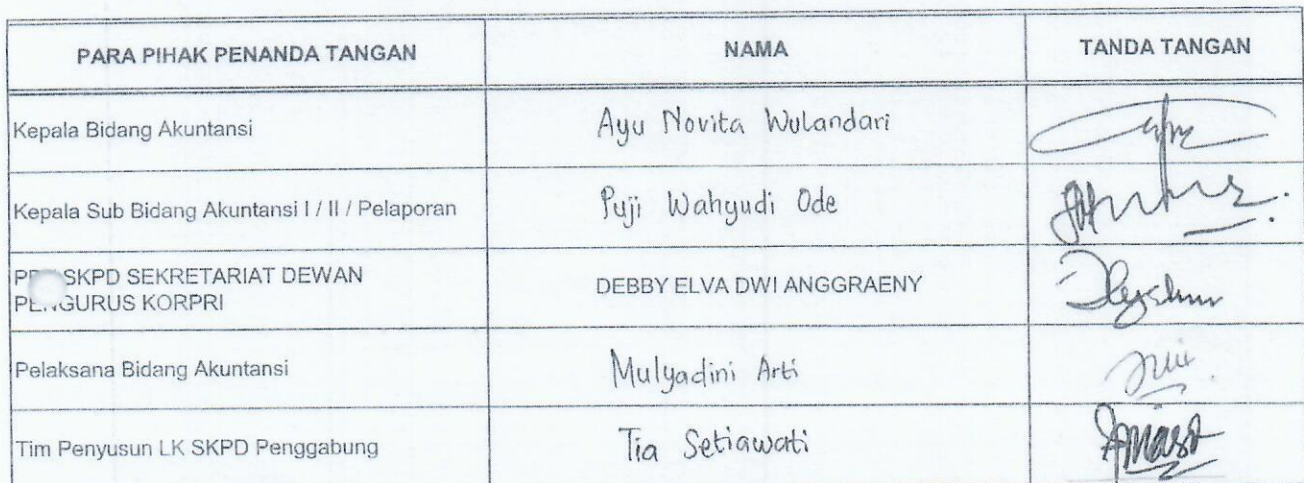 PARA PIHAK PENANDA TANGAN NAMA TANDA TANGAN
Kepala Bidang Akuntansi Ayu Novita Wulandari
Kepala Sub Bidang Akuntansi I / II / Pelaporan Puji Wahyudi Ode
SKPD SEKRETARIAT DEWAN
PENGURUS KORPRI DEBBY ELVA DWI ANGGRAENY
Pelaksana Bidang Akuntansi Mulyadini Arti
Tim Penyusun LK SKPD Penggabung Tia Setiawati